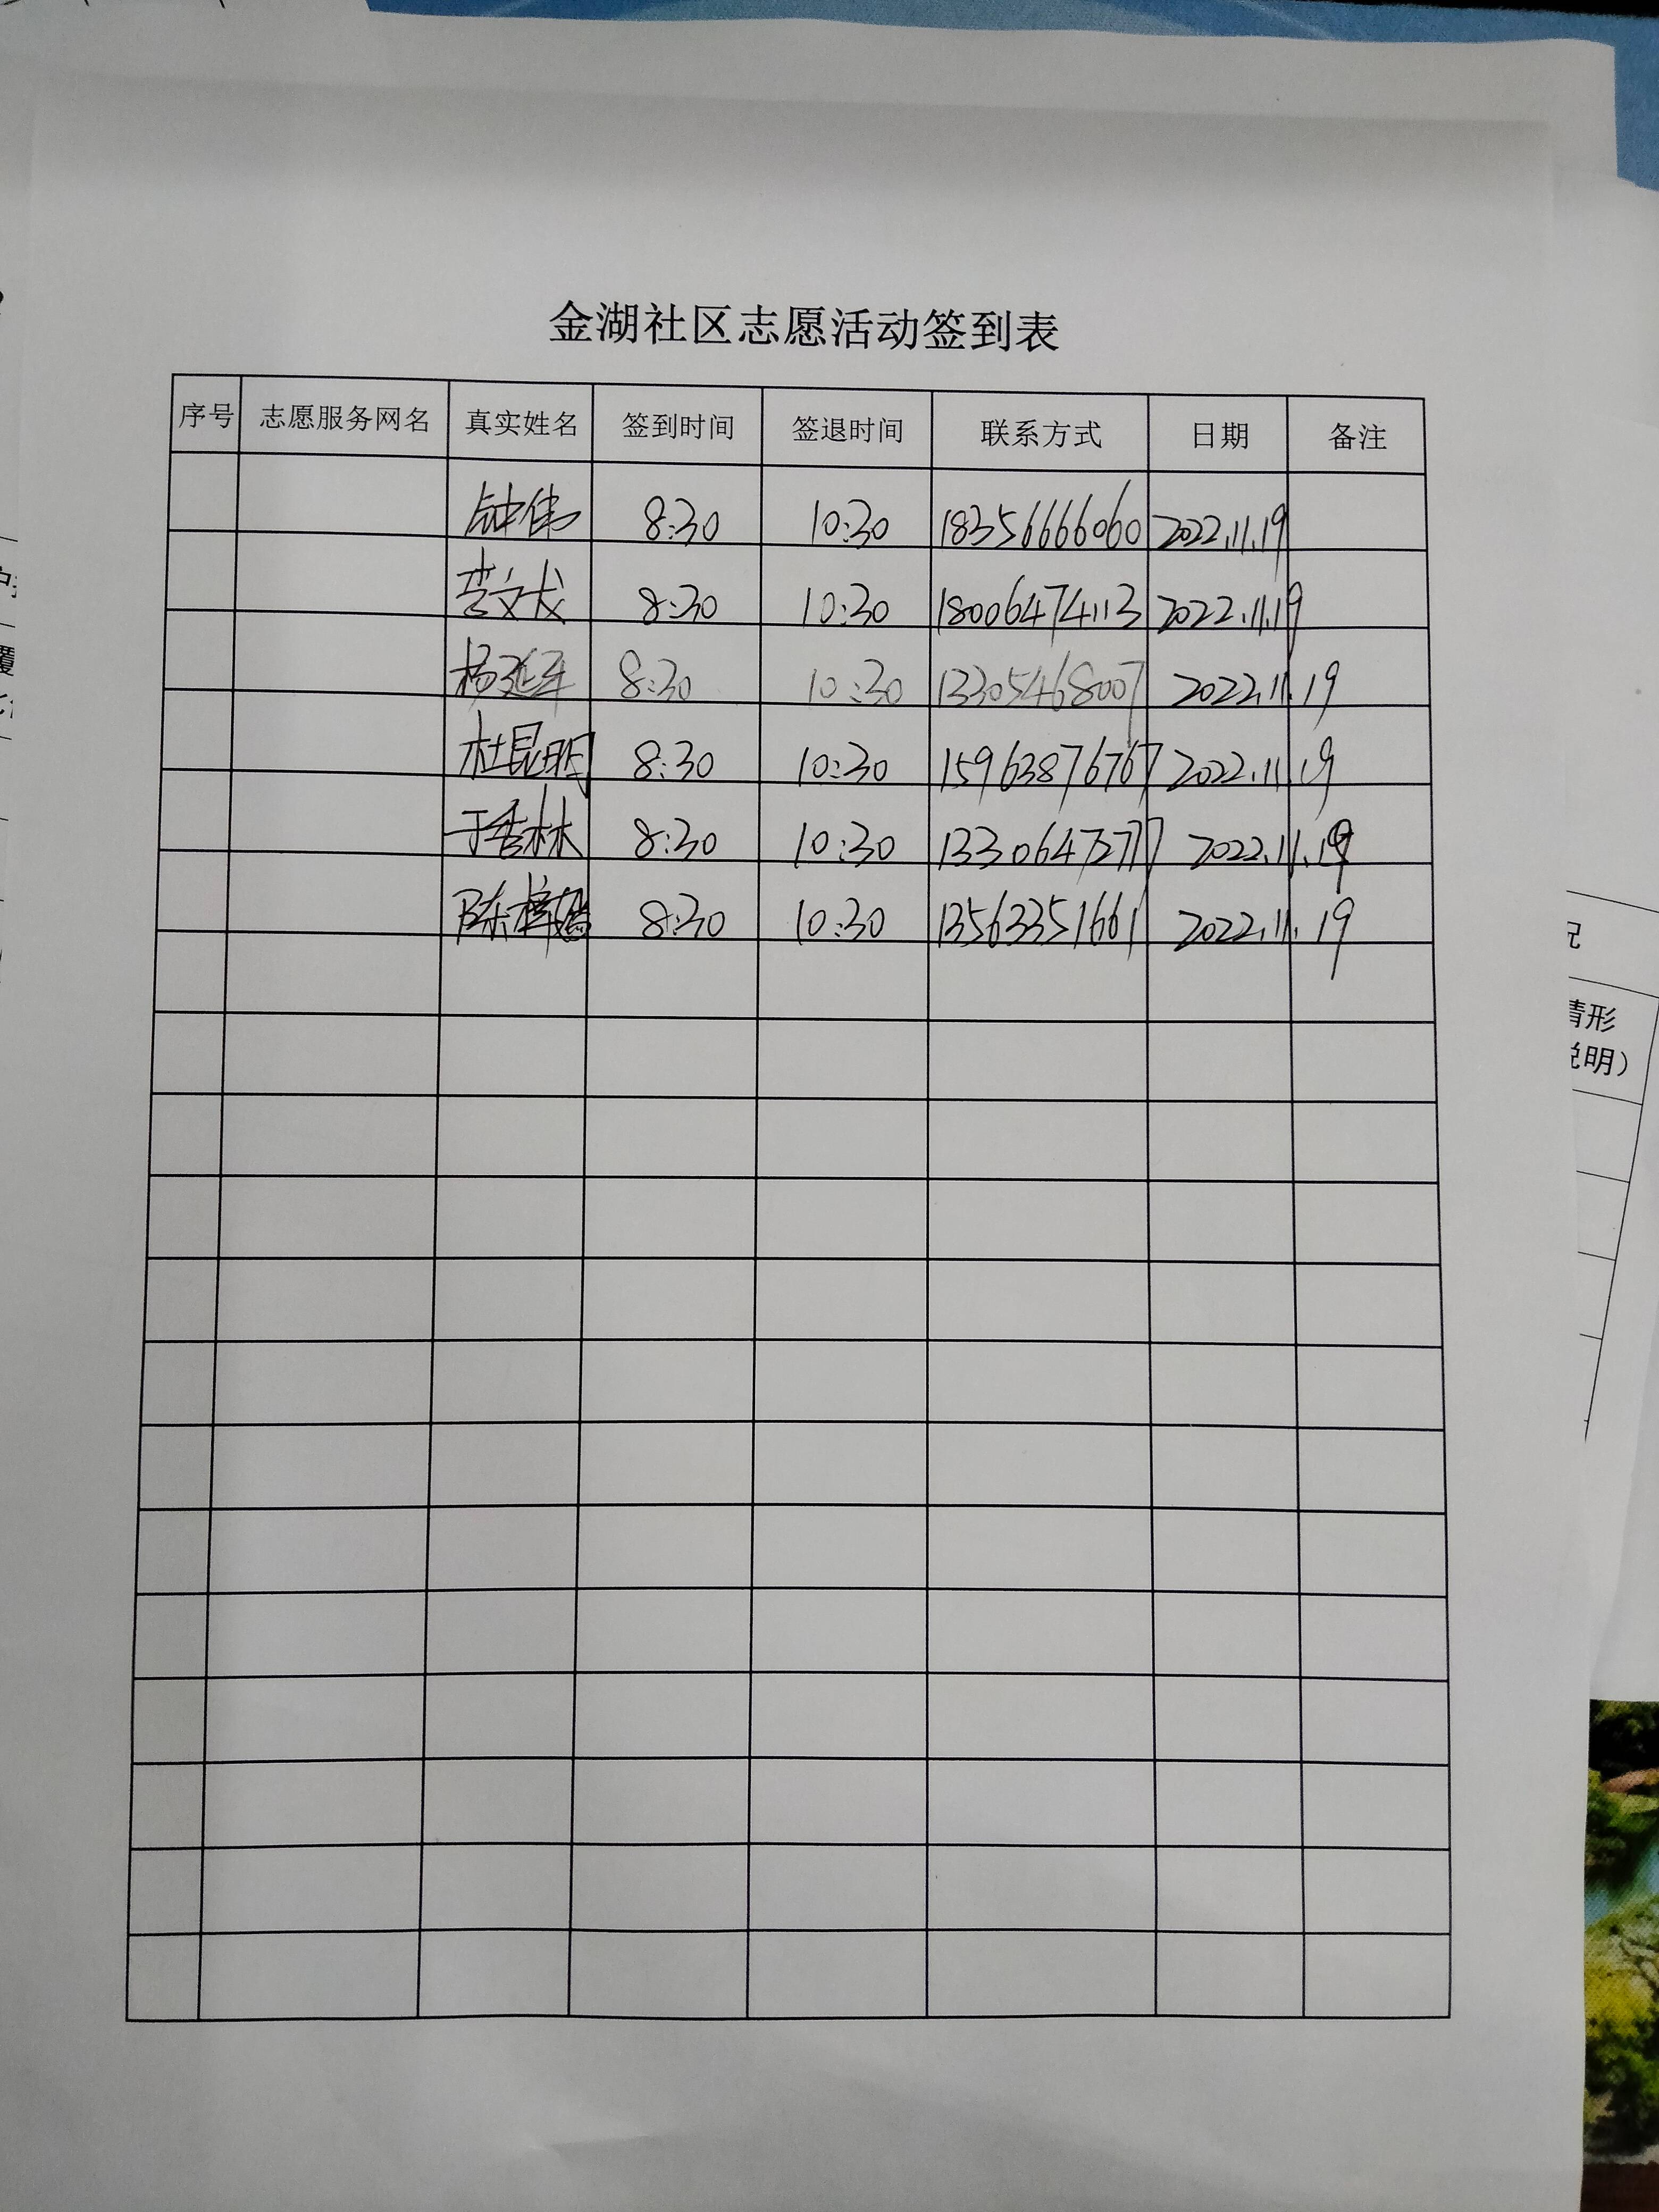 金湖社区志愿活动签到表
序号 志愿服务网名 真实姓名 签到时间 签退时间 联系方式 日期 备注
钟伟 8:30 10:30 18356666060 2022.11.19
8:30 10:30 18006474113 2022.11.19
杨延军 8:30 10:30 13305468007 2022.11.19
杜昆明 8:30 10:30 15963876767 2022.11.19
于秀林 8:30 10:30 13306472777 2022.11.19
陈 8:30 10:30 13563351661 2022.11.19
情形
说明）